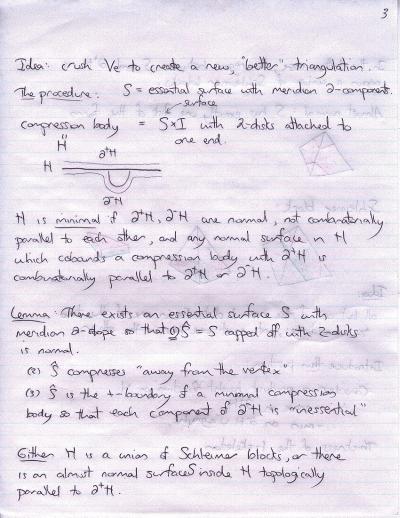 3
Idea: crush Ve to create a new, "better" triangulation.
The procedure: S = essential surface with meridian ∂-component.
surface
compression body = S×I with 2-disks attached to
one end.
H
∂⁺H
H
∂⁻H
H is minimal if ∂⁺H, ∂⁻H are normal, not combinatorially
parallel to each other, and any normal surface in H
which cobounds a compression body with ∂⁺H is
combinatorially parallel to ∂⁺H or ∂⁻H.
Lemma: There exists an essential surface S with
meridian ∂-slope so that (1) Ŝ = S capped off with 2-disks
is normal.
(2) Ŝ compresses "away from the vertex"
(3) Ŝ is the +-boundary of a minimal compression
body so that each component of ∂⁻H is "inessential"
Either H is a union of Schleimer blocks, or there
is an almost normal surface S inside H topologically
parallel to ∂⁺H.